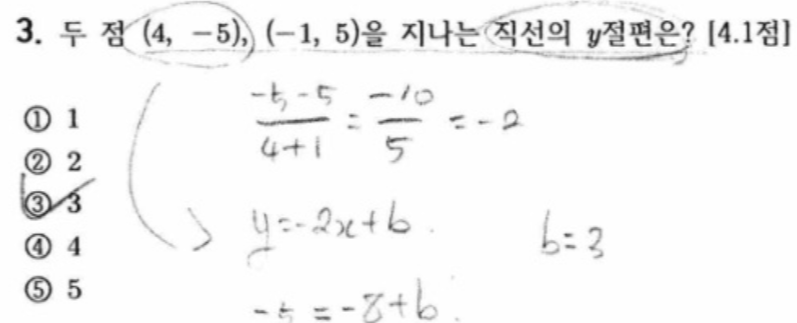 3. 두 점 (4, -5), (-1, 5)을 지나는 직선의 y절편은? [4.1점]
① 1
② 2
③ 3
④ 4
⑤ 5
-5-5/4+1 = -10/5 = -2
y=-2x+b.
b=3
-5=-8+b.